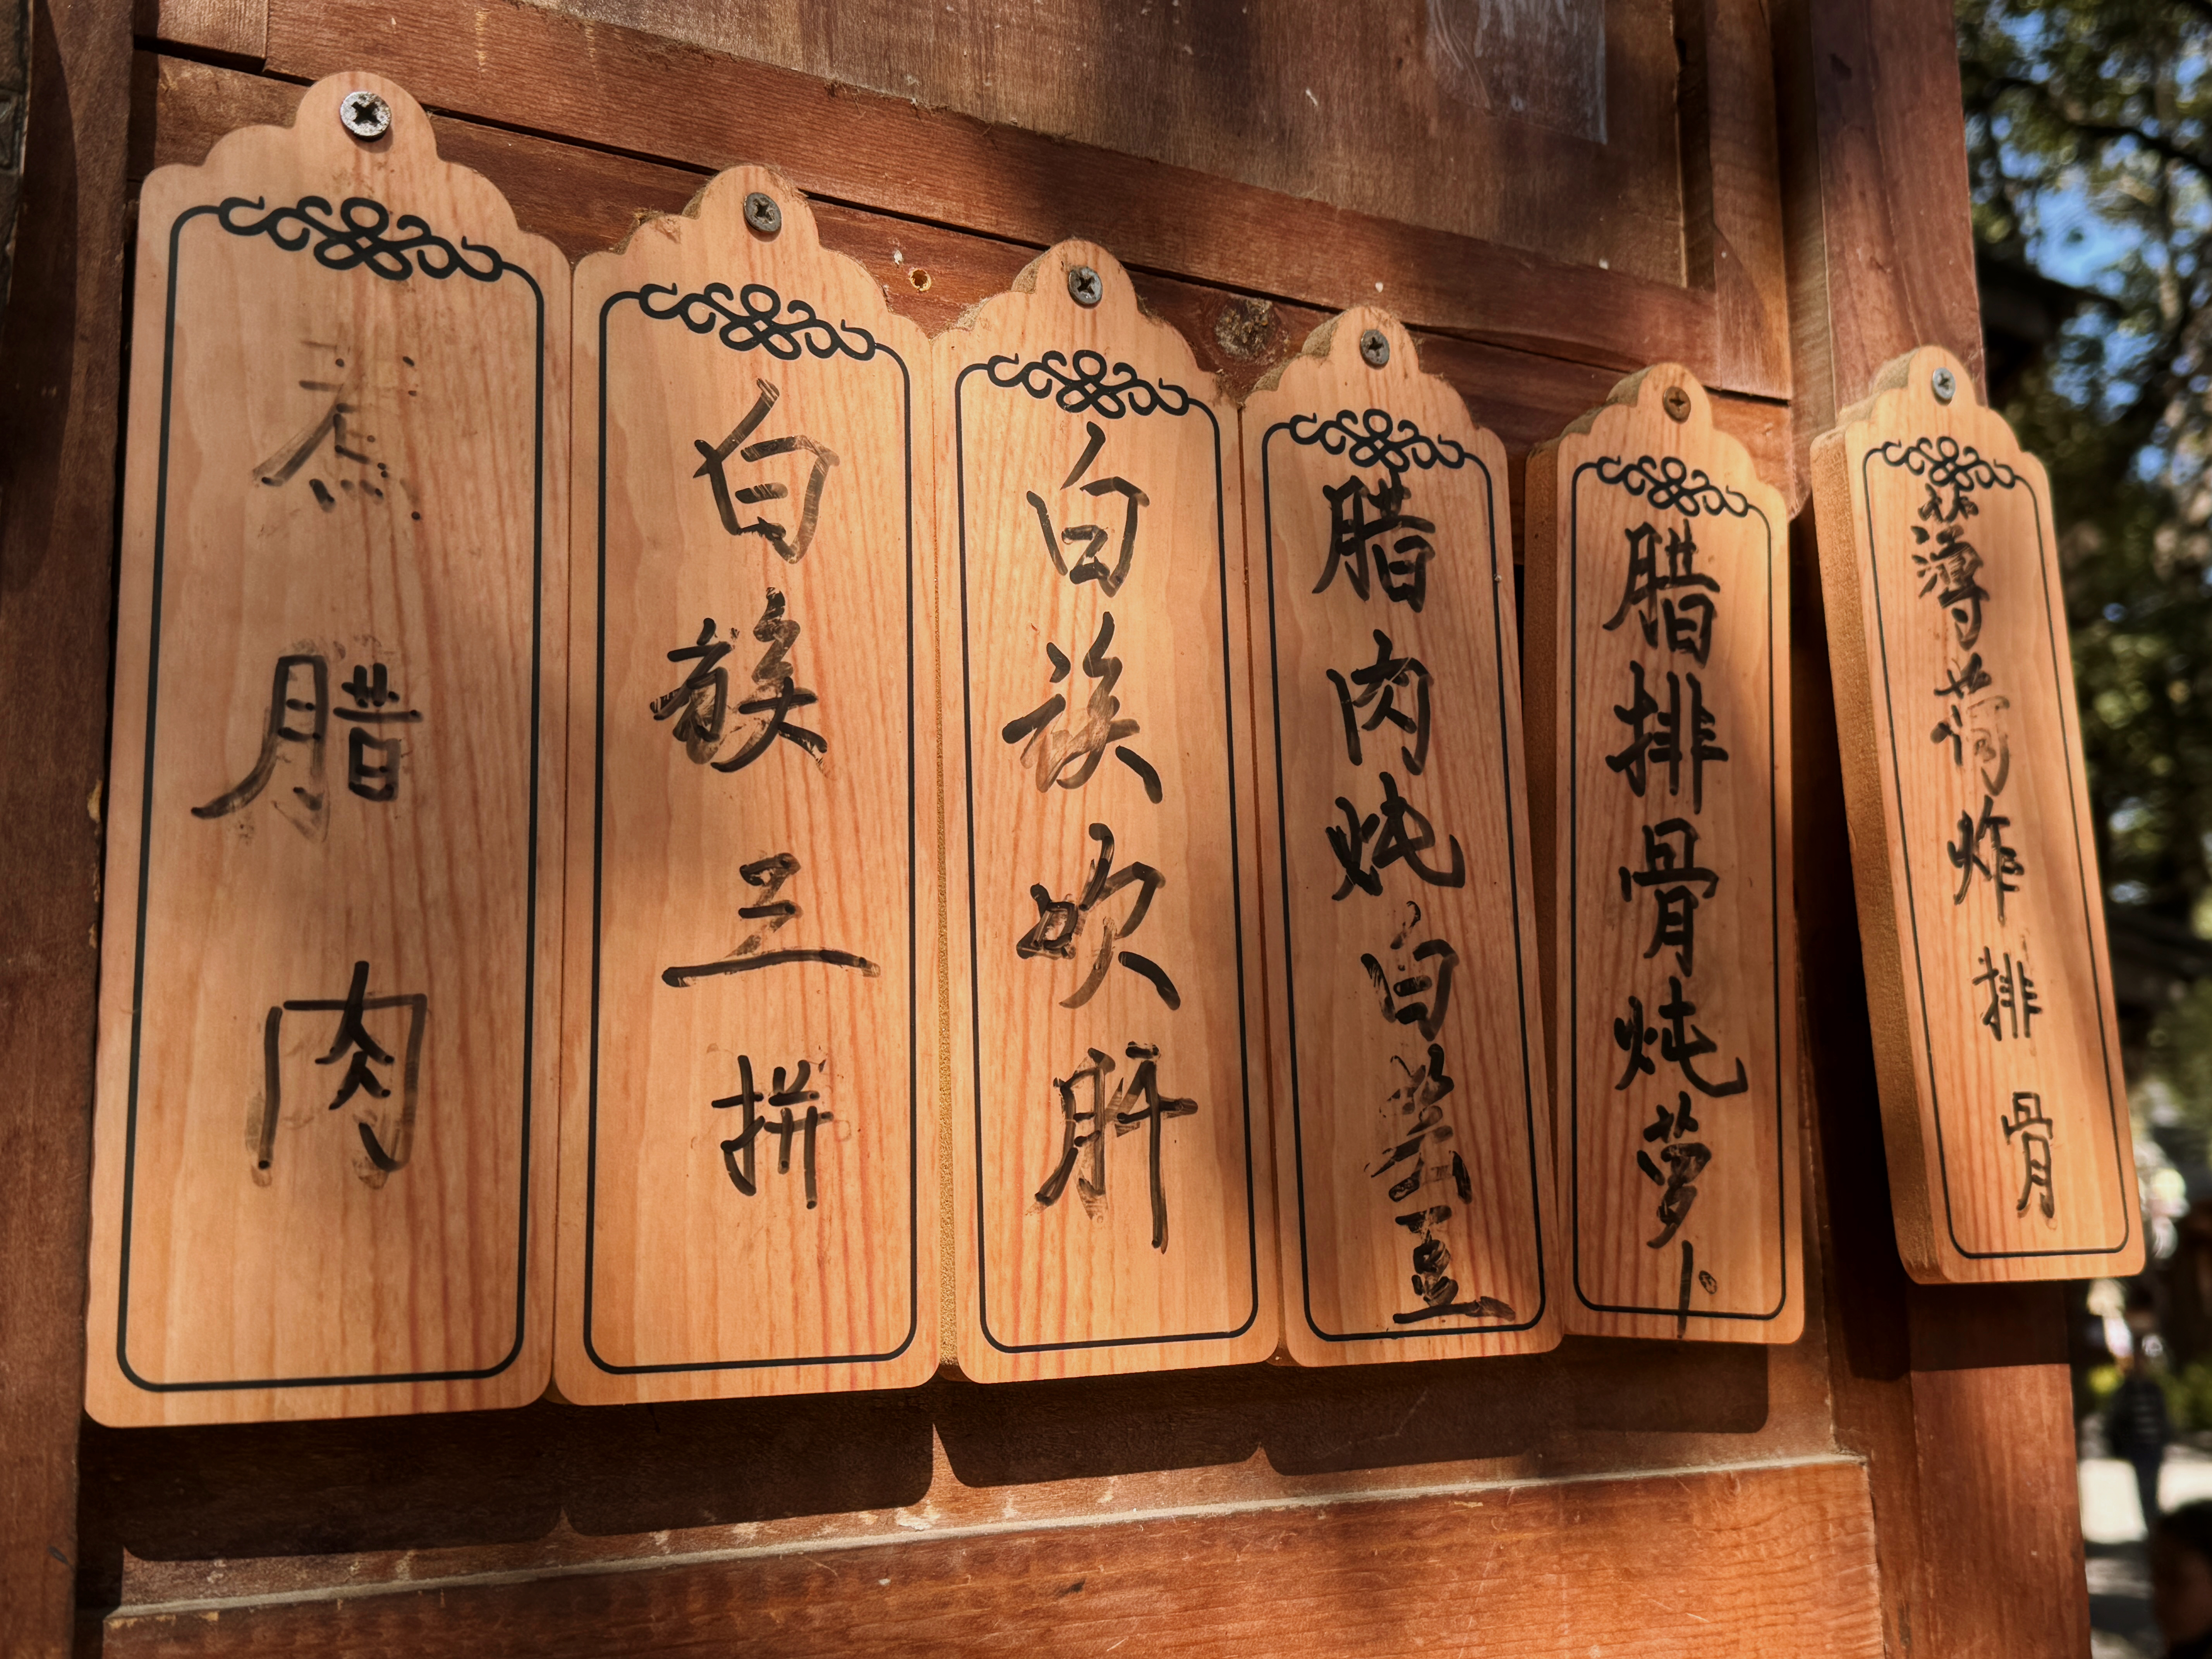 煮腊肉
白族三拼
白族吹肝
腊肉炖白芸豆
腊排骨炖萝卜
薄荷炸排骨